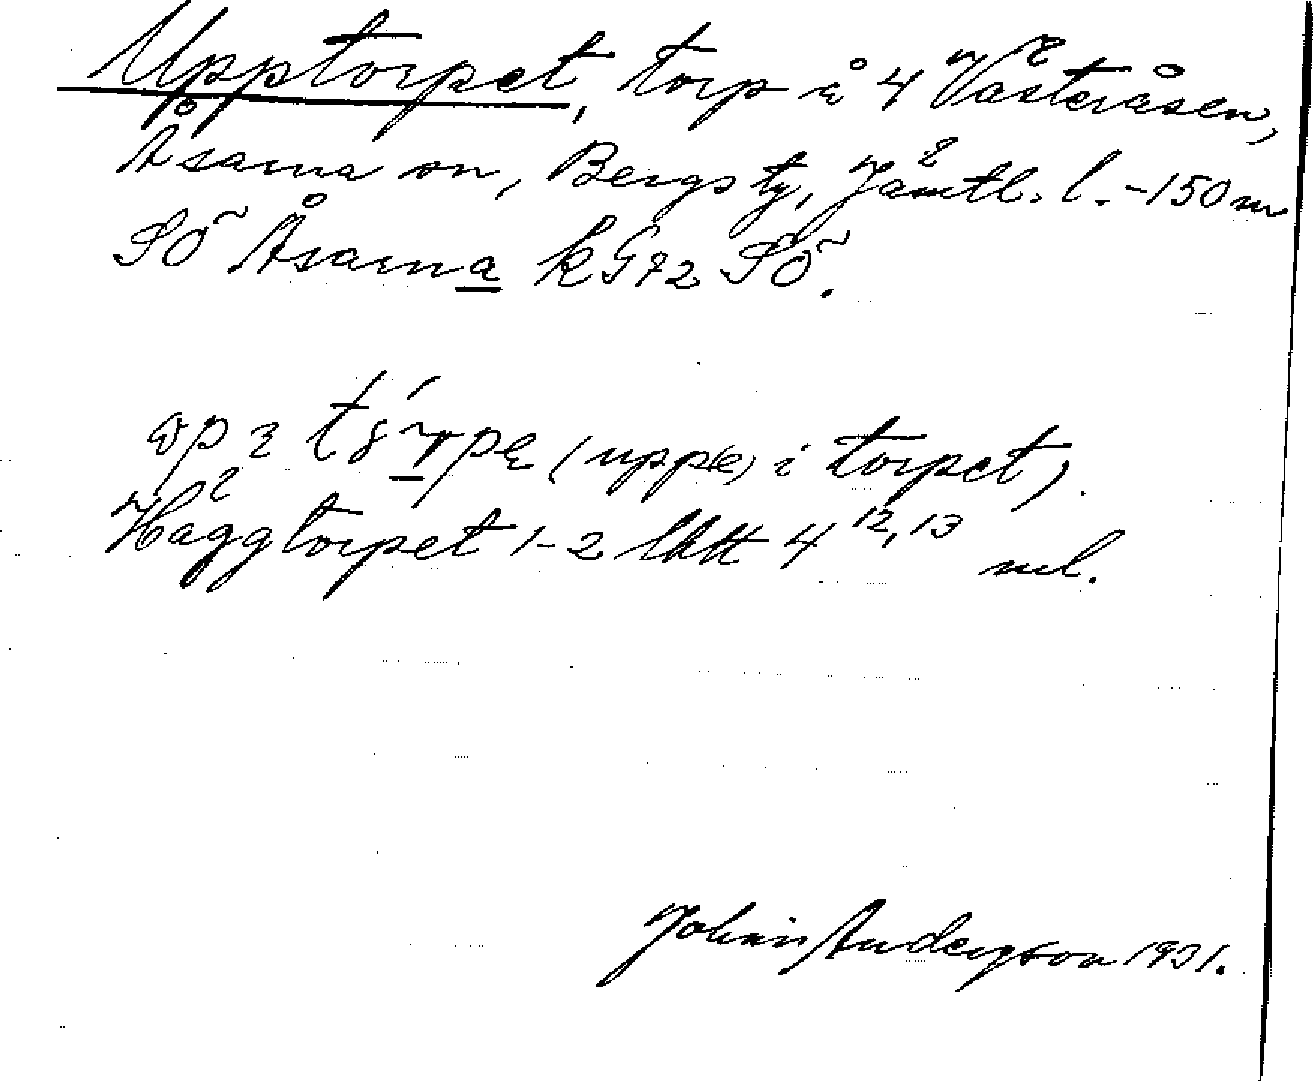 Upptorpet, torp å 4 Västeråsen,
Åsarna sn, Bergs tg, Jämtl. l. -150 m
SÖ Åsarna k G72 SÖ.
(uppe) i torpet).
Häggtorpet 1-2 lktt 4 12,13 ml.
Johan Anderson 1931.